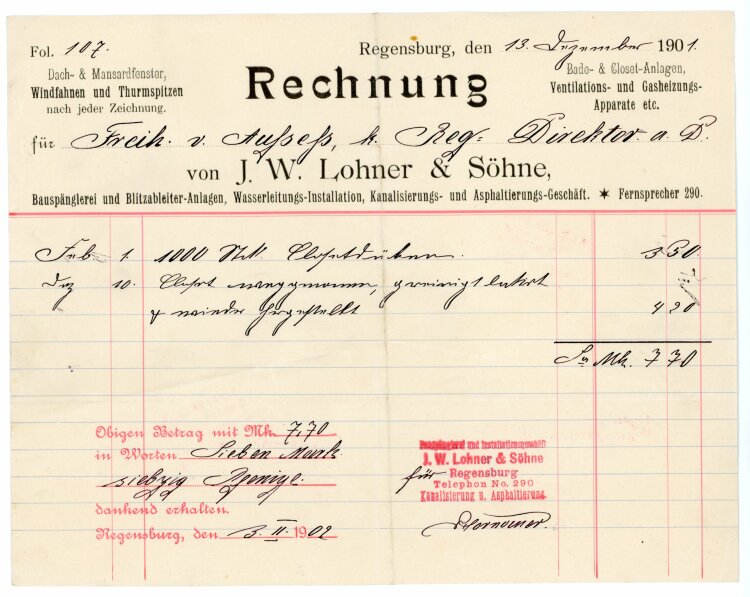 Fol. 107.
Regensburg, den 13. Dezember 1901.
Dach- & Mansardfenster,
Windfahnen und Thurmspitzen
nach jeder Zeichnung.
Rechnung
Bade- & Closet-Anlagen,
Ventilations- und Gasheizungs-
Apparate etc.
für Freih. v. Aufseß, k. Reg: Direktor a. D.
von J. W. Lohner & Söhne,
Bauspänglerei und Blitzableiter-Anlagen, Wasserleitungs-Installation, Kanalisierungs- und Asphaltierungs-Geschäft. ✶ Fernsprecher 290.
Feb 1. 1000 Stk. 3 50
Dez 10. Closet weggenommen, gereinigt lakirt
& wieder hergestellt 4 20
Sa Mk. 7 70
Obigen Betrag mit Mk. 7,70
in Worten Sieben Mark
siebzig Pfenige
dankend erhalten.
Regensburg, den 3. II. 1902
Bauspänglerei und Installationsgeschäft
J. W. Lohner & Söhne
für Regensburg
Telephon No. 290
Kanalisierung u. Asphaltierung.